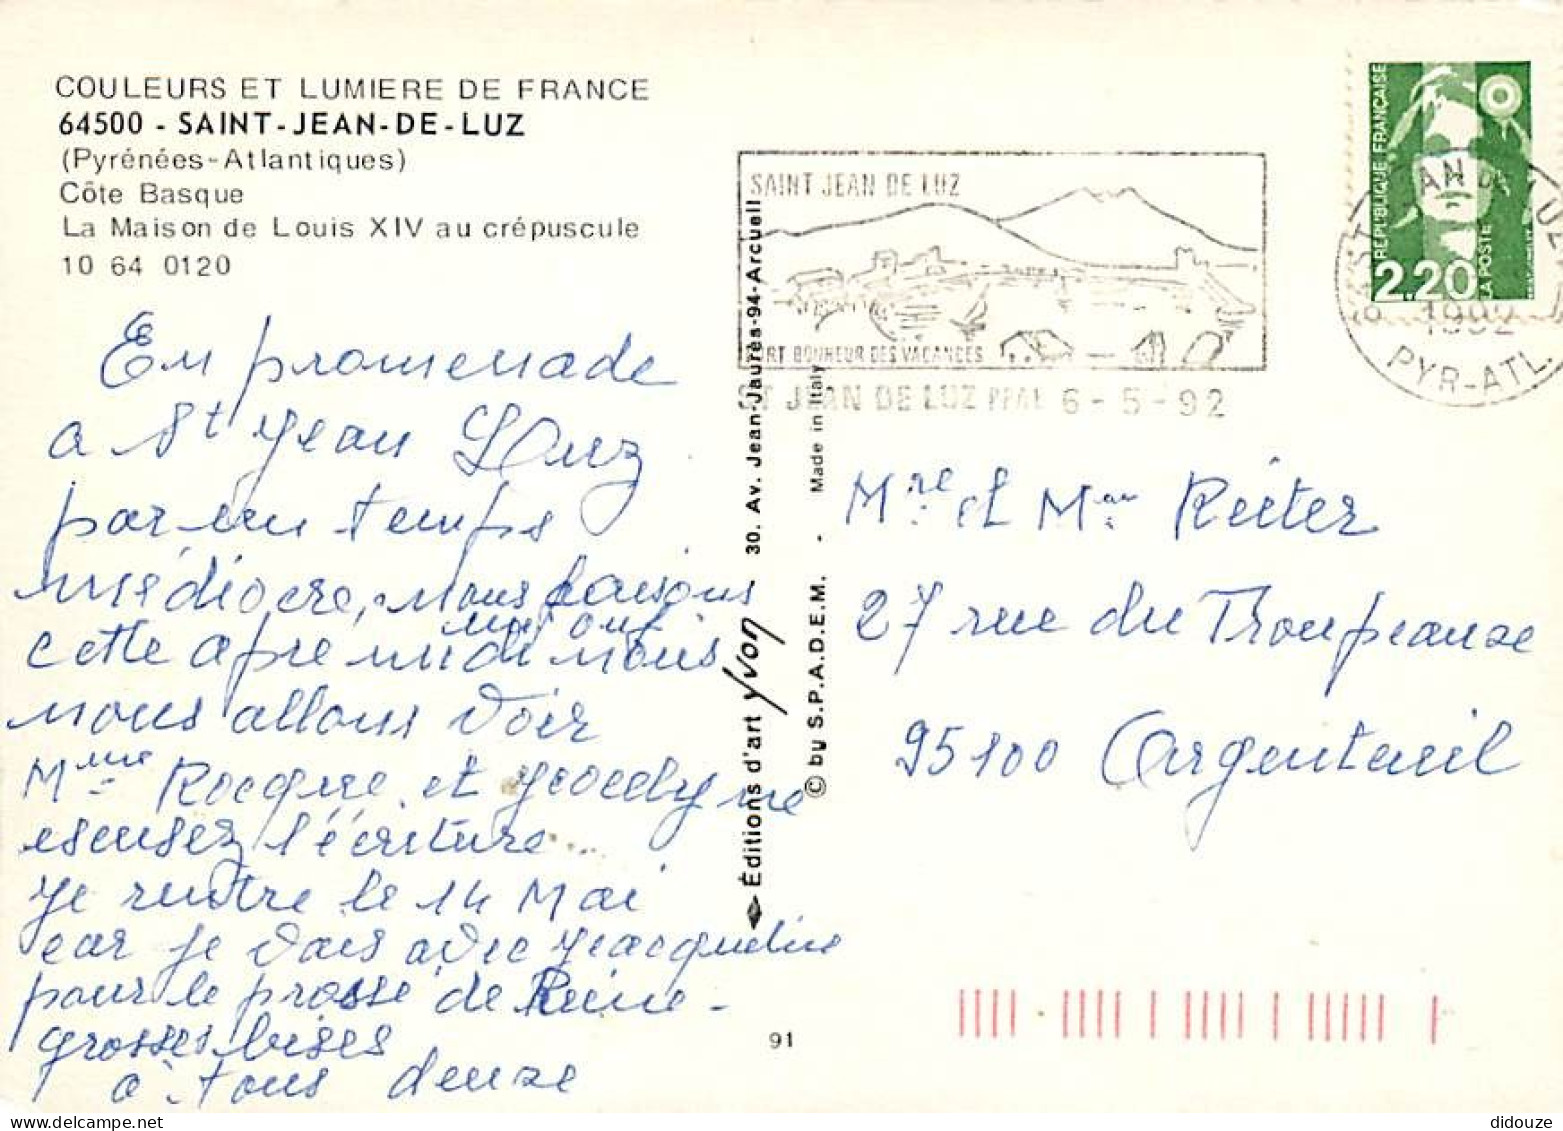 COULEURS ET LUMIERE DE FRANCE
64500 - SAINT-JEAN-DE-LUZ
(Pyrénées-Atlantiques)
Côte Basque
La Maison de Louis XIV au crépuscule
10 64 0120
En promenade
a St Jean Luz
par un temps
médiocre, nous faisons
cette apre midi nous
nous allons voir
Mme et Jocelyne
escusez l'écriture
Je rentre le 14 Mai
car je vais avec Jacqueline
pour le de Reine -
grosses bises
à tous deuxe
Éditions d'art Yvon - 30. Av. Jean-Jaurès-94-Arcueil
© by S.P.A.D.E.M. - Made in Italy
91
SAINT JEAN DE LUZ
PORT BONHEUR DES VACANCES
ST JEAN DE LUZ PPAL 6-5-92
RÉPUBLIQUE FRANÇAISE
2,20
LA POSTE
ST JEAN DE LUZ
1992
PYR-ATL.
Mre et Mme Reiter
27 rue du Troupeauxe
95100 Argenteuil
didouze
delcampe.net